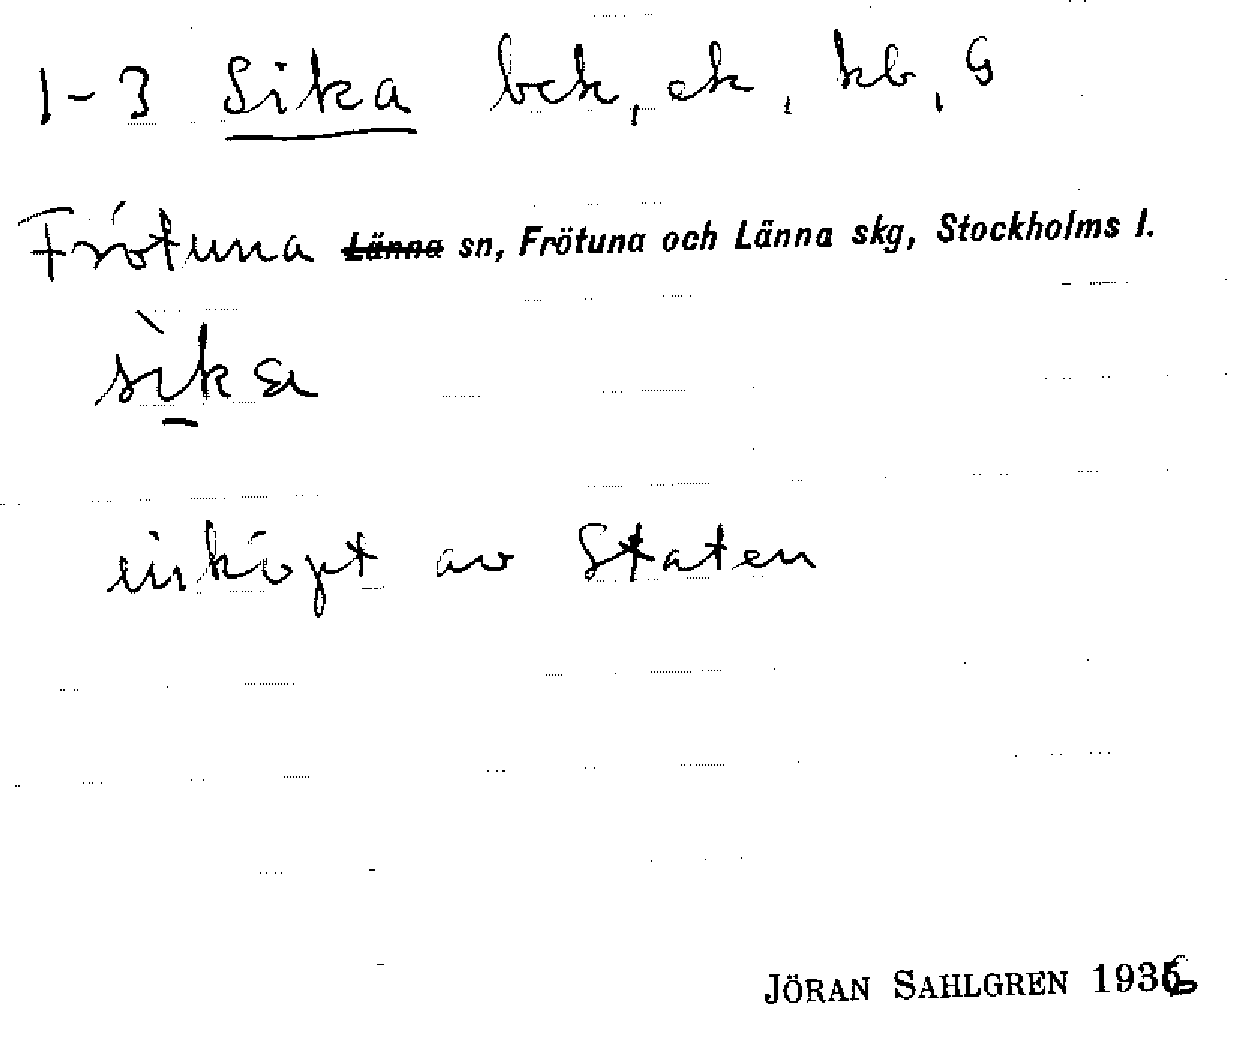 1-3 Sika bck, ck, kb, G
Frötuna Länna sn, Frötuna och Länna skg, Stockholms l.
sika
inköpt av Staten
JÖRAN SAHLGREN 1936